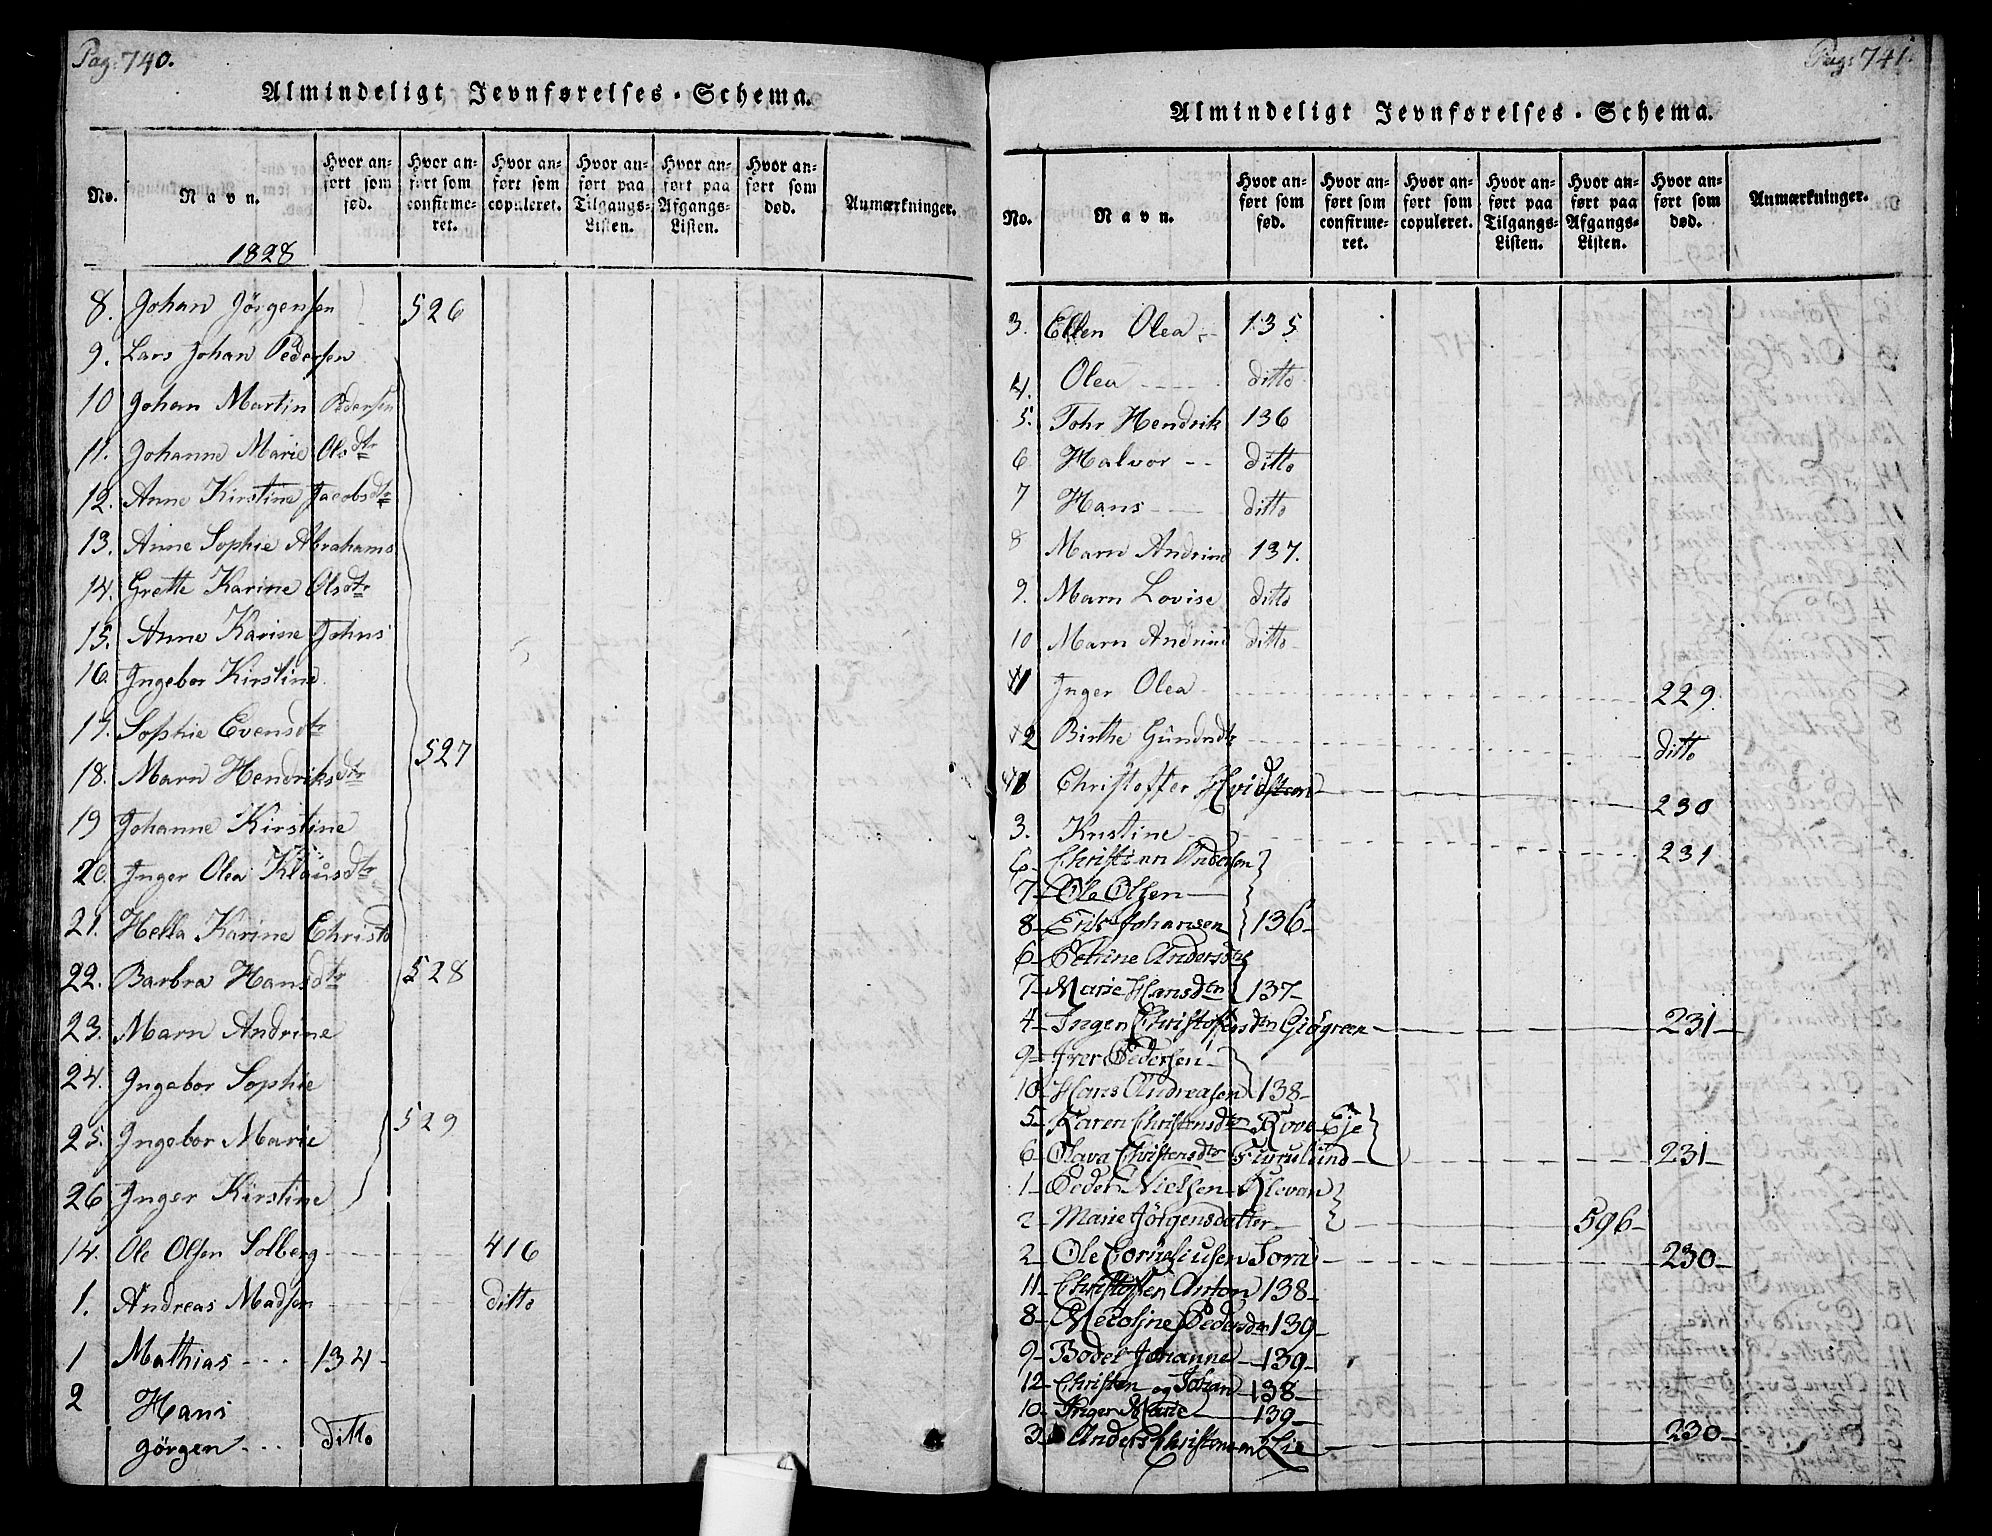 Pag: 740.
Almindeligt Jevnførelses-Schema.
No. Navn. Hvor anført som fød. Hvor anført som confirmeret. Hvor anført som copuleret. Hvor anført paa Tilgangs-Listen. Hvor anført paa Afgangs-Listen. Hvor anført som død. Anmærkninger.
1828
8. Johan Jörgensen 526
9. Lars Johan Pedersen
10 Johan Martin Pedersen
11. Johanne Marie Olsdtr
12. Anne Kirstine Jacobsdtr
13. Anne Sophie Abrahams
14. Grette Karine Olsdtr
15. Anne Karine Johns
16. Ingebor Kirstine
17. Sophie Evensdtr
527
18. Marn Hendriksdtr
19 Johanne Kirstine
20. Inger Olea Klausdtr
21. Hella Karine Christo
22. Barbra Hansdtr 528
23. Marn Andrine
24. Ingebor Sophie
25. Ingebor Marie 529
26 Inger Kirstine
14. Ole Olsen Solberg 416
1. Andreas Madsen ditto
1 Mathias 134
2 Hans
Jörgen ditto
Pag: 741.
Almindeligt Jevnførelses-Schema.
No. Navn. Hvor anført som fød. Hvor anført som confirmeret. Hvor anført som copuleret. Hvor anført paa Tilgangs-Listen. Hvor anført paa Afgangs-Listen. Hvor anført som død. Anmærkninger.
3. Ellen Olea 135
4. Olea ditto
5. Tohr Hendrik 136
6 Halvor ditto
7 Hans ditto
8 Marn Andrine 137.
9. Marn Lovise ditto
10 Marn Andrine ditto
1 Inger Olea 229.
2 Birthe Gundrdtr ditto
1 Christoffer Hvidsteen 230
3. Kristine 231
6 Christian Andersen
7 Ole Olsen
8 Erik Johansen 136
6 Petrine Andersdtr
7 Marie Hansdtr 137
4 Inger Christoffersdtr Gjögreen 231
9 Iver Pedersen
10 Hans Andreasen 138
5 Karen Christensdtr Rove Eje
6 Olava Christensdtr Furulund 231
1 Peder Nielsen Klevan
2 Marie Jörgensdatter 596
2 Ole Corneliusen Sora 230
11 Christoffen Anton 138
8 Meroline Pedersdtr 139
9 Bodel Johanne 139
12 Christen og Johan 138
10 Inger Marie 139
3 Anders Christensen Lie 230